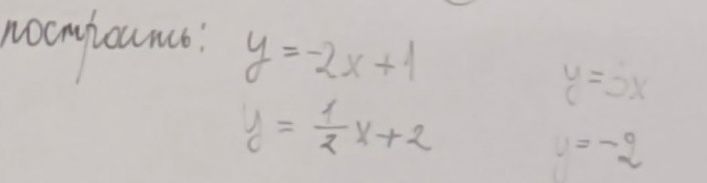 построить: y = -2x + 1
y = 1/2 x + 2
y = 3x
y = -2